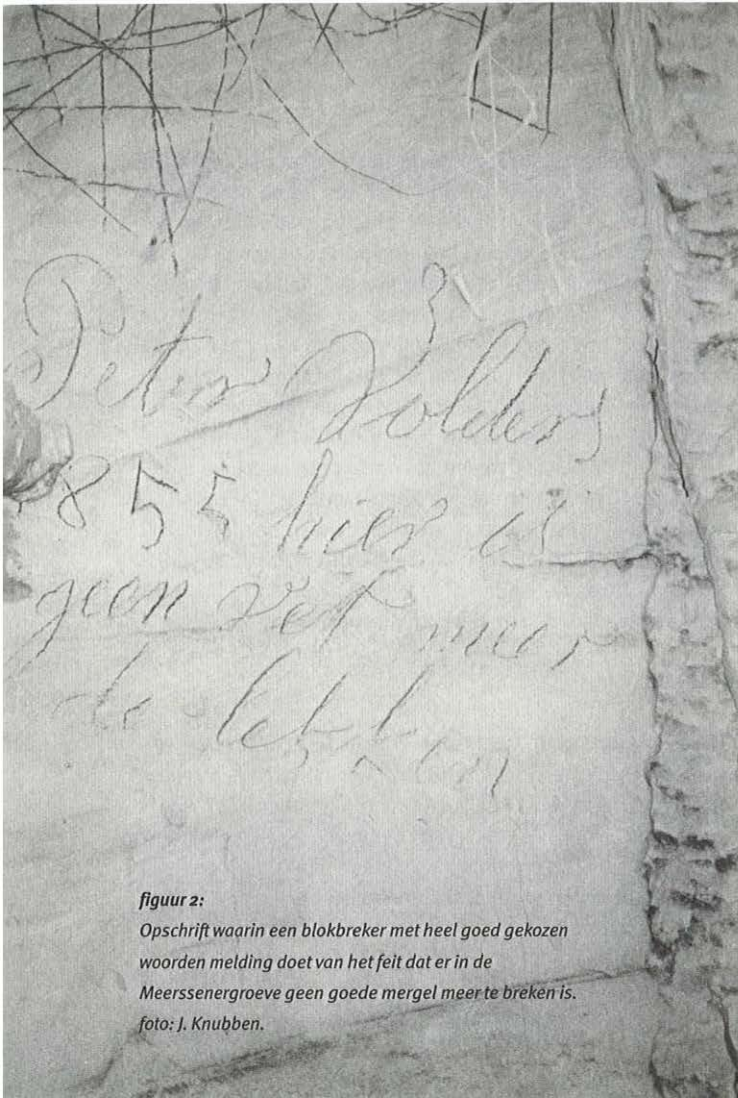 Peter Volders
1855 hier is
geen vet meer
te lekken
figuur 2:
Opschrift waarin een blokbreker met heel goed gekozen
woorden melding doet van het feit dat er in de
Meerssenergroeve geen goede mergel meer te breken is.
foto: J. Knubben.